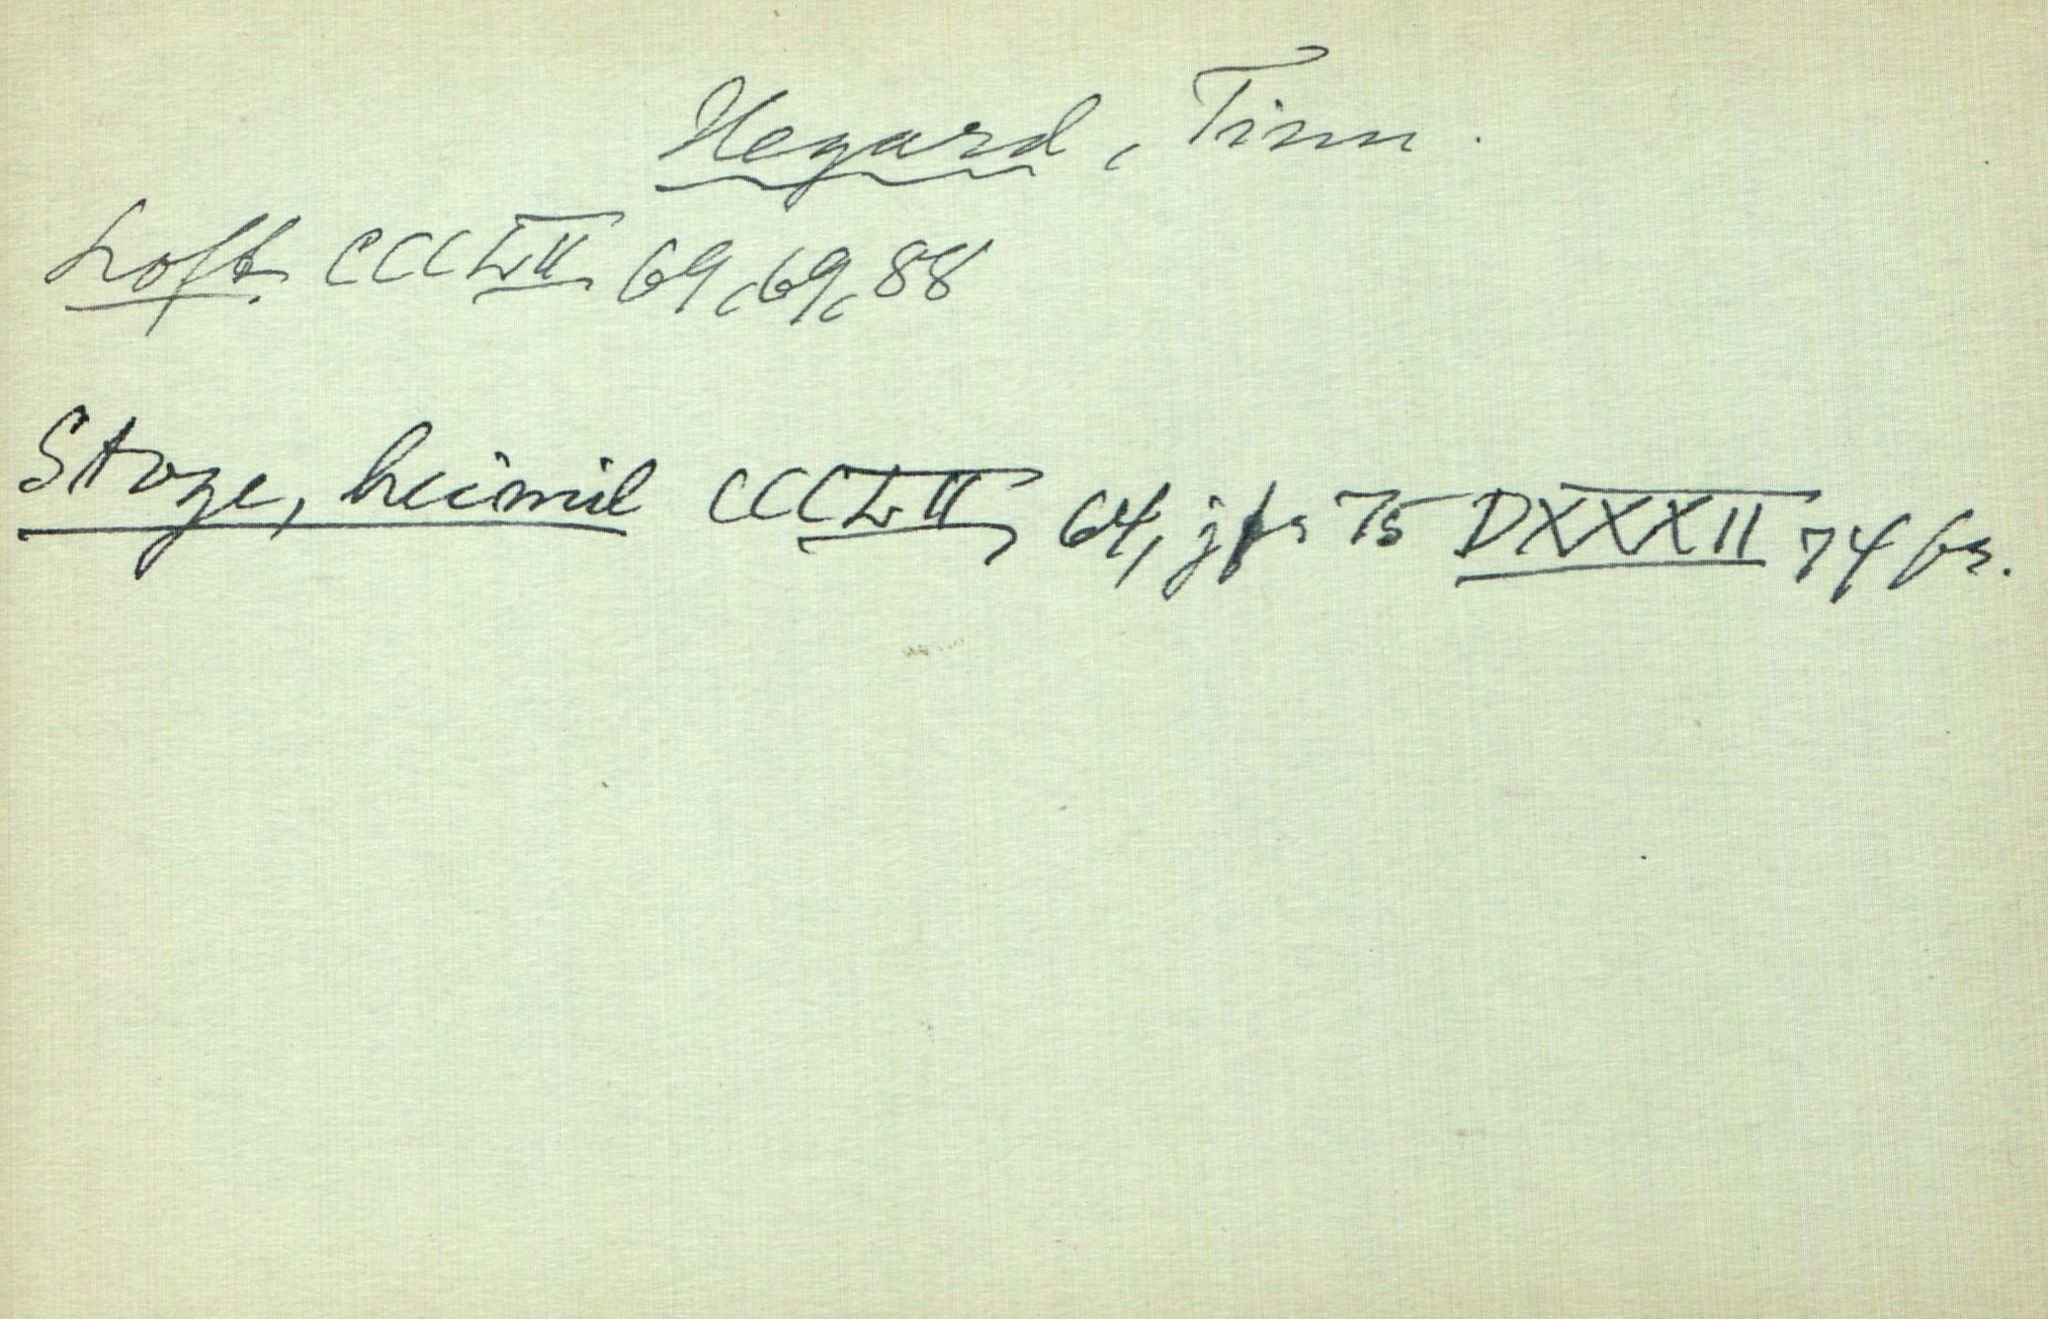 Hegard, Tinn.
Loft. CCCLVII 69, 69, 88
Stoge, heimil CCCLVII, 64, jfr 75 DXXXII 74 fr.